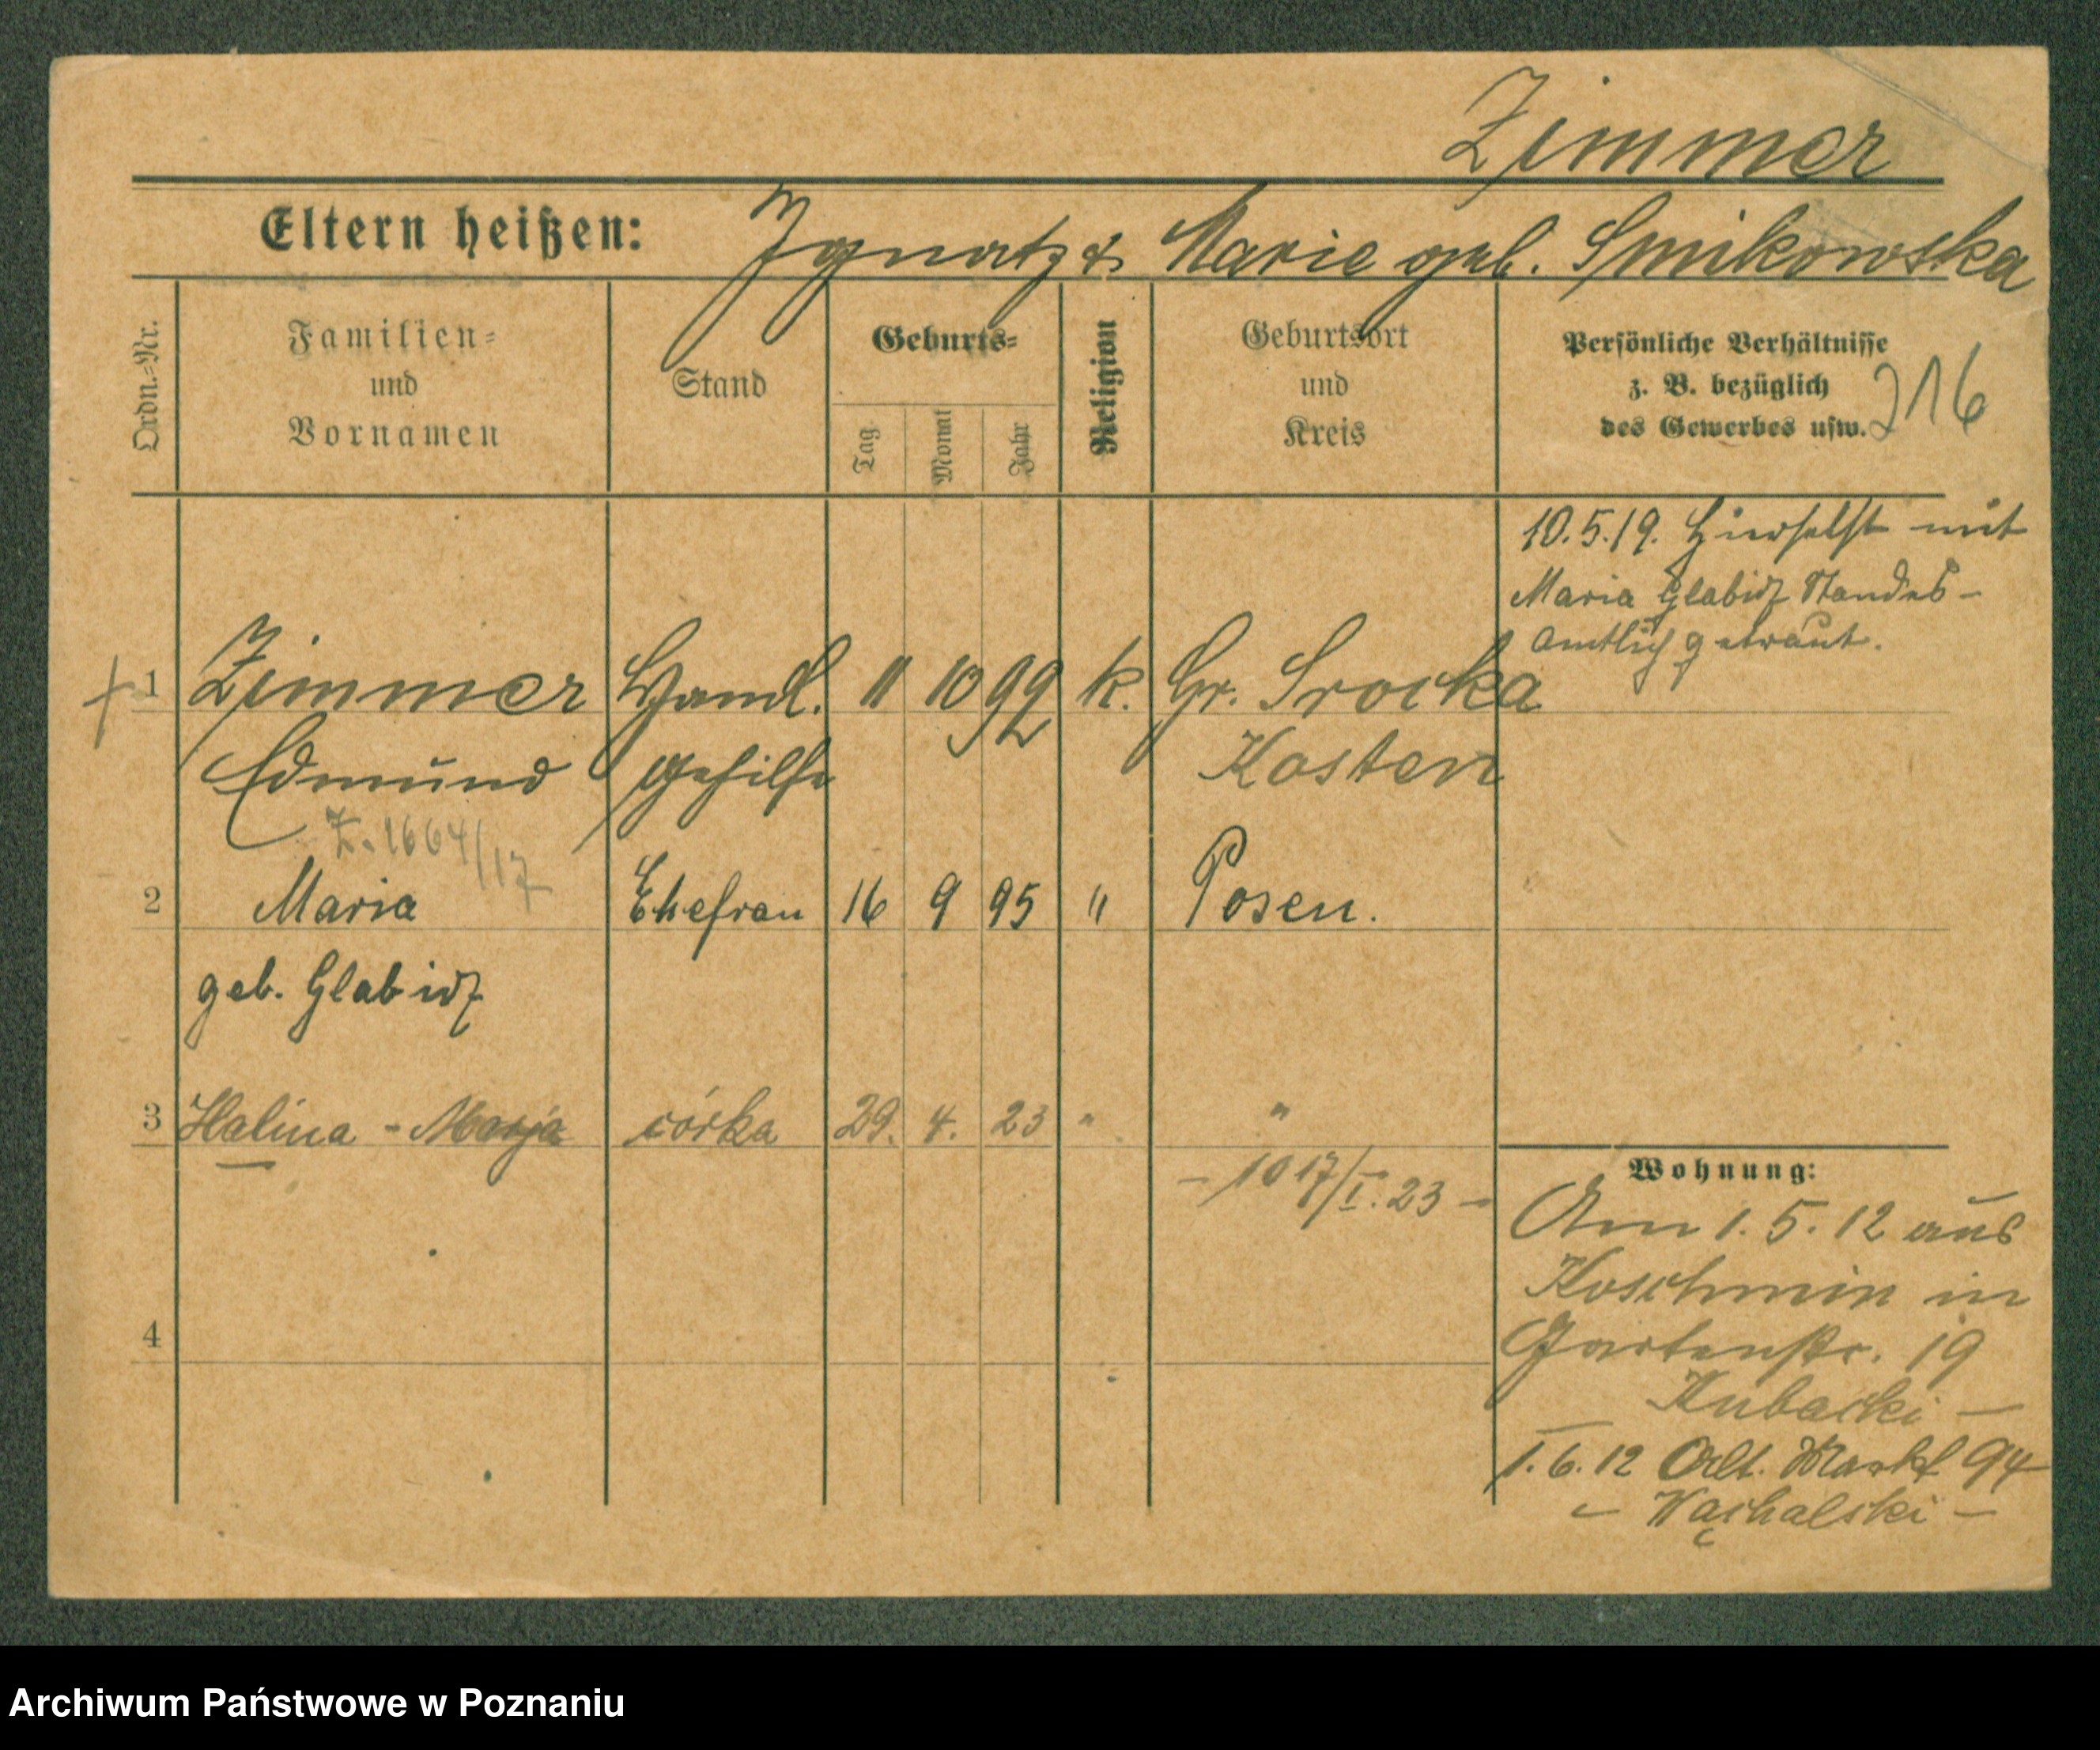 Zimmer
Eltern heißen: Ignatz & Marie geb. Smikowska
Ordn.-Nr.
Familien-
und
Vornamen
Stand
Geburts-
Tag
Monat
Jahr
Religion
Geburtsort
und
Kreis
Persönliche Verhältnisse
z. B. bezüglich
des Gewerbes usw.
216
10.5.19. hierselbst mit
Maria Glabisz Standes-
amtlich getraut.
1 Zimmer Handl. 11 10 92 k. Gr. Srocka
Edmund gehilfe Kosten
Z. 1664/17
2 Maria Ehefrau 16 9 95 " Posen.
geb. Glabisz
3 Halina - Marja córka 29. 4. 23 " "
- 10 17/I. 23 -
4
Wohnung:
Am 1. 5. 12 aus
Koschmin in
Gartenstr. 19
Kubacki -
1. 6. 12 Alt. Markt 94
- Wąchalski -
Archiwum Państwowe w Poznaniu